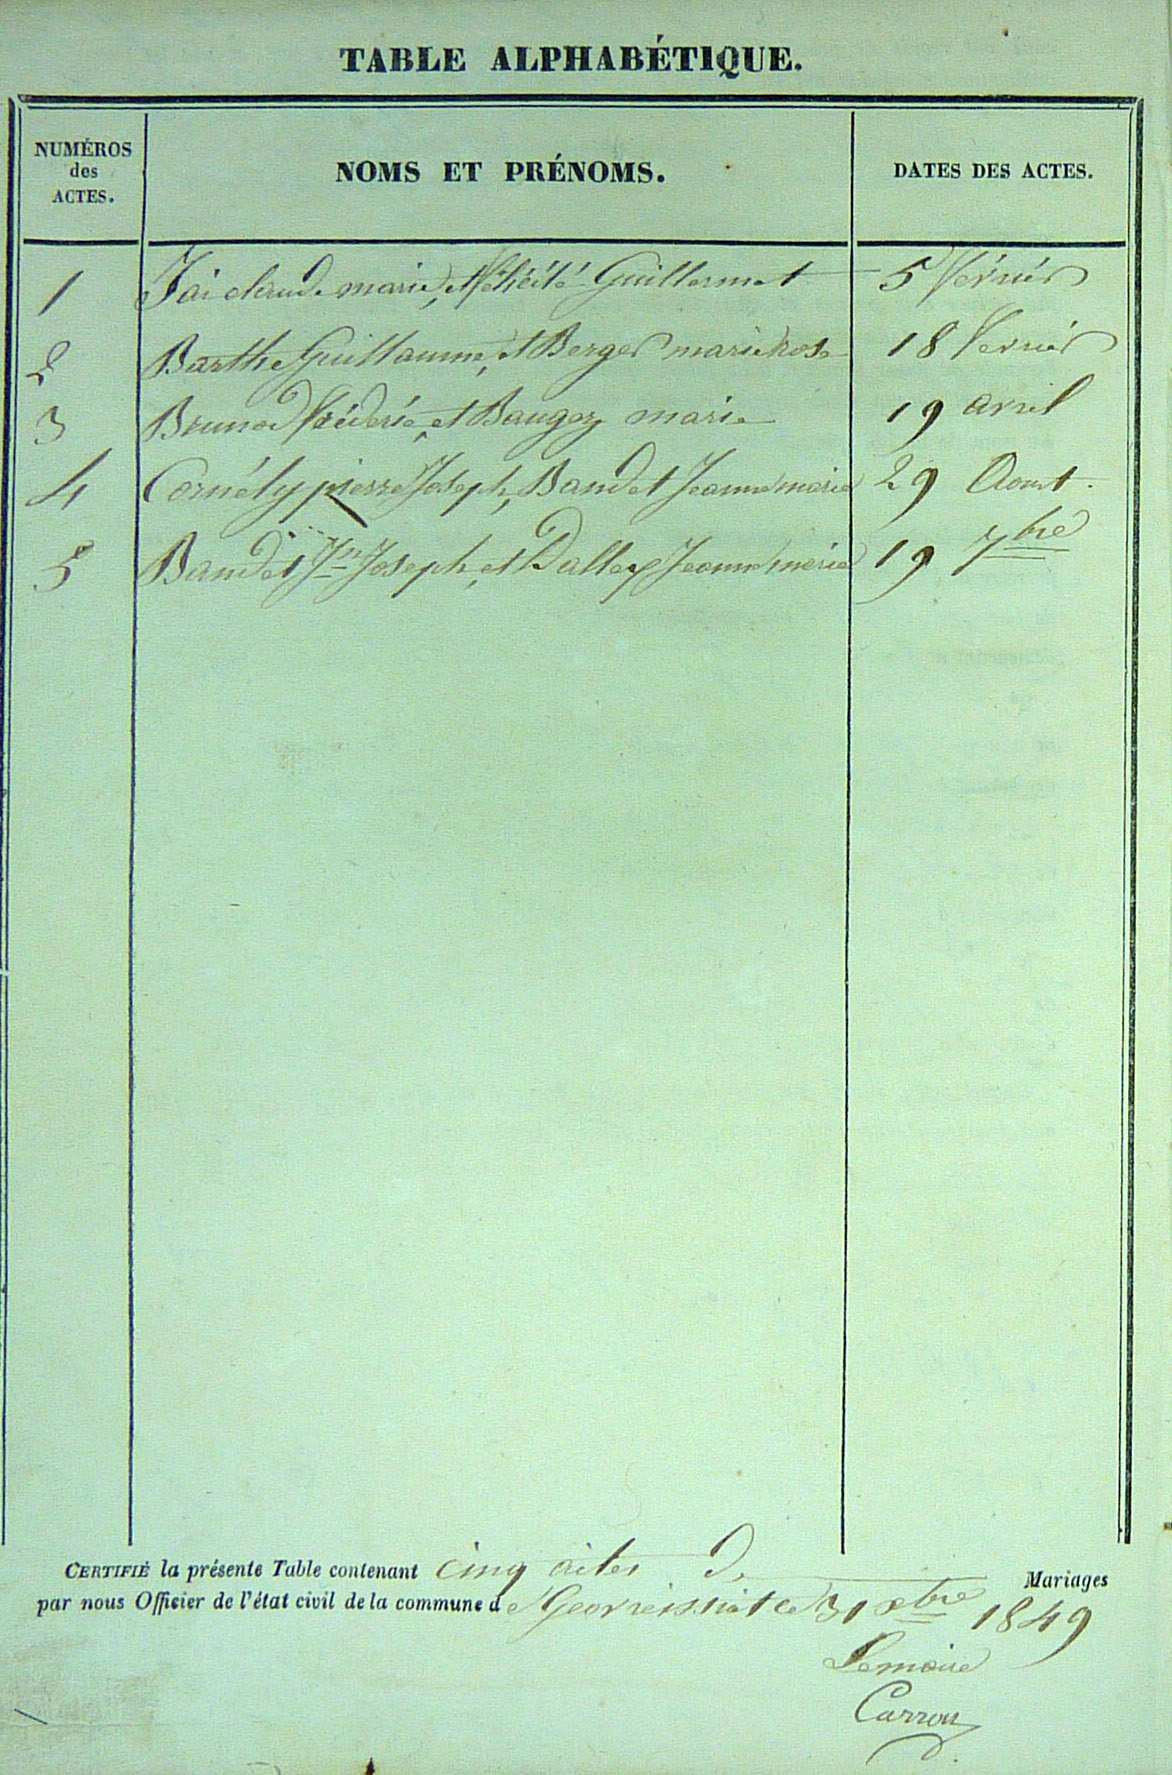 TABLE ALPHABÉTIQUE.
NUMÉROS
des
ACTES.
NOMS ET PRÉNOMS.
DATES DES ACTES.
1 Jai claude marie, et félicité Guillermet 5 Février
2 Barthe Guillaume, et Berger marie Rose 18 Fevrier
3 Brunod fréderic, et Baugez marie 19 avril
4 Cornély pierre Joseph, Baudet Jeanne marie 29 Aout
5 Baudet Jn Joseph, et Dalley Jeanne marie 19 7bre
CERTIFIÉ la présente Table contenant cinq actes de Mariages
par nous Officier de l'état civil de la commune d e Geovreissiat ce 31 xbre 1849
Le maire
Carron